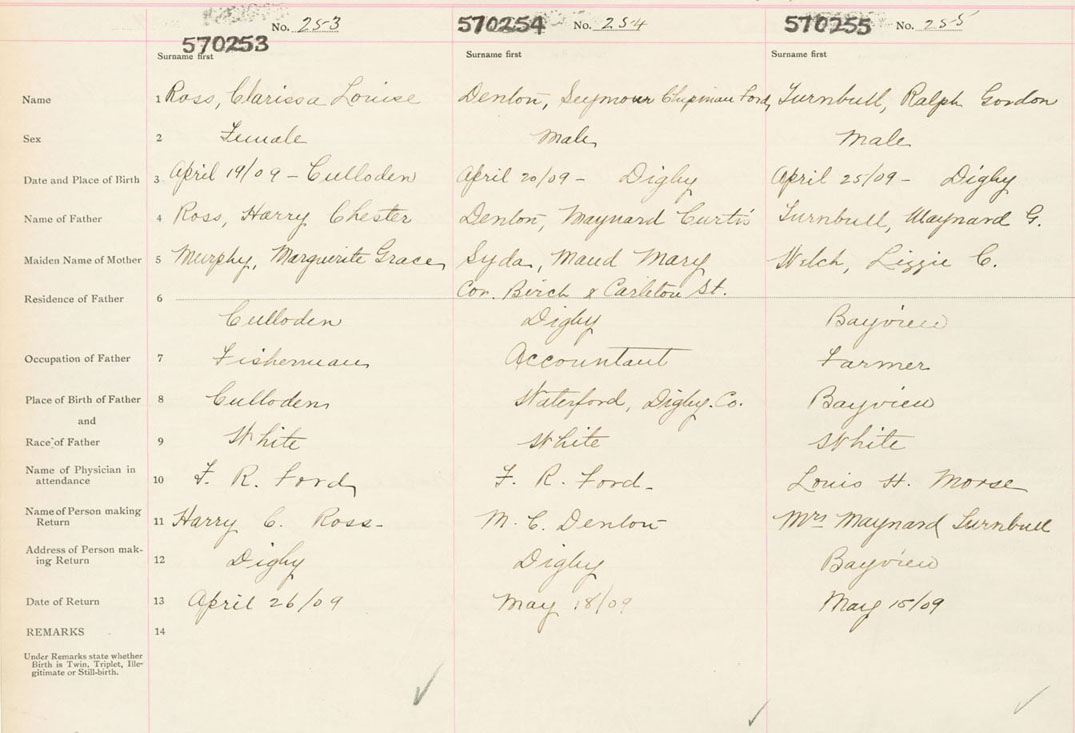 No. 253 570254 No. 254 570255 No. 255
570253
Surname first Surname first Surname first
Name 1 Ross, Clarissa Louise Denton, Seymour Chipman Ford, Turnbull, Ralph Gordon
Sex 2 Female Male Male
Date and Place of Birth 3 April 19/09 - Culloden April 20/09 - Digby April 25/09 - Digby
Name of Father 4 Ross, Harry Chester Denton, Maynard Curtis Turnbull, Maynard G.
Maiden Name of Mother 5 Murphy, Marguerite Grace Syda, Maud Mary Welch, Lizzie C.
Cor. Birch & Carleton St.
Residence of Father 6
Culloden Digby Bayview
Occupation of Father 7 Fisherman Accountant Farmer
Place of Birth of Father 8 Culloden Waterford, Digby Co. Bayview
and
Race of Father 9 White White White
Name of Physician in
attendance 10 F. R. Ford F. R. Ford - Louis H. Morse
Name of Person making
Return 11 Harry C. Ross - M. C. Denton Mrs Maynard Turnbull
Address of Person mak-
ing Return 12 Digby Digby Bayview
Date of Return 13 April 26/09 May 18/09 May 15/09
REMARKS 14
Under Remarks state whether
Birth is Twin, Triplet, Ille-
gitimate or Still-birth.